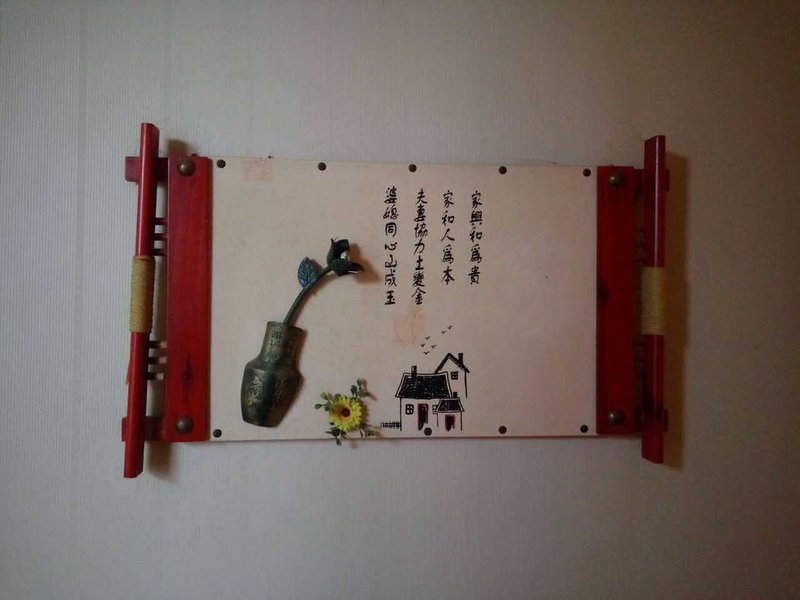 家興和為貴
家和人為本
夫妻協力土變金
婆媳同心山成玉